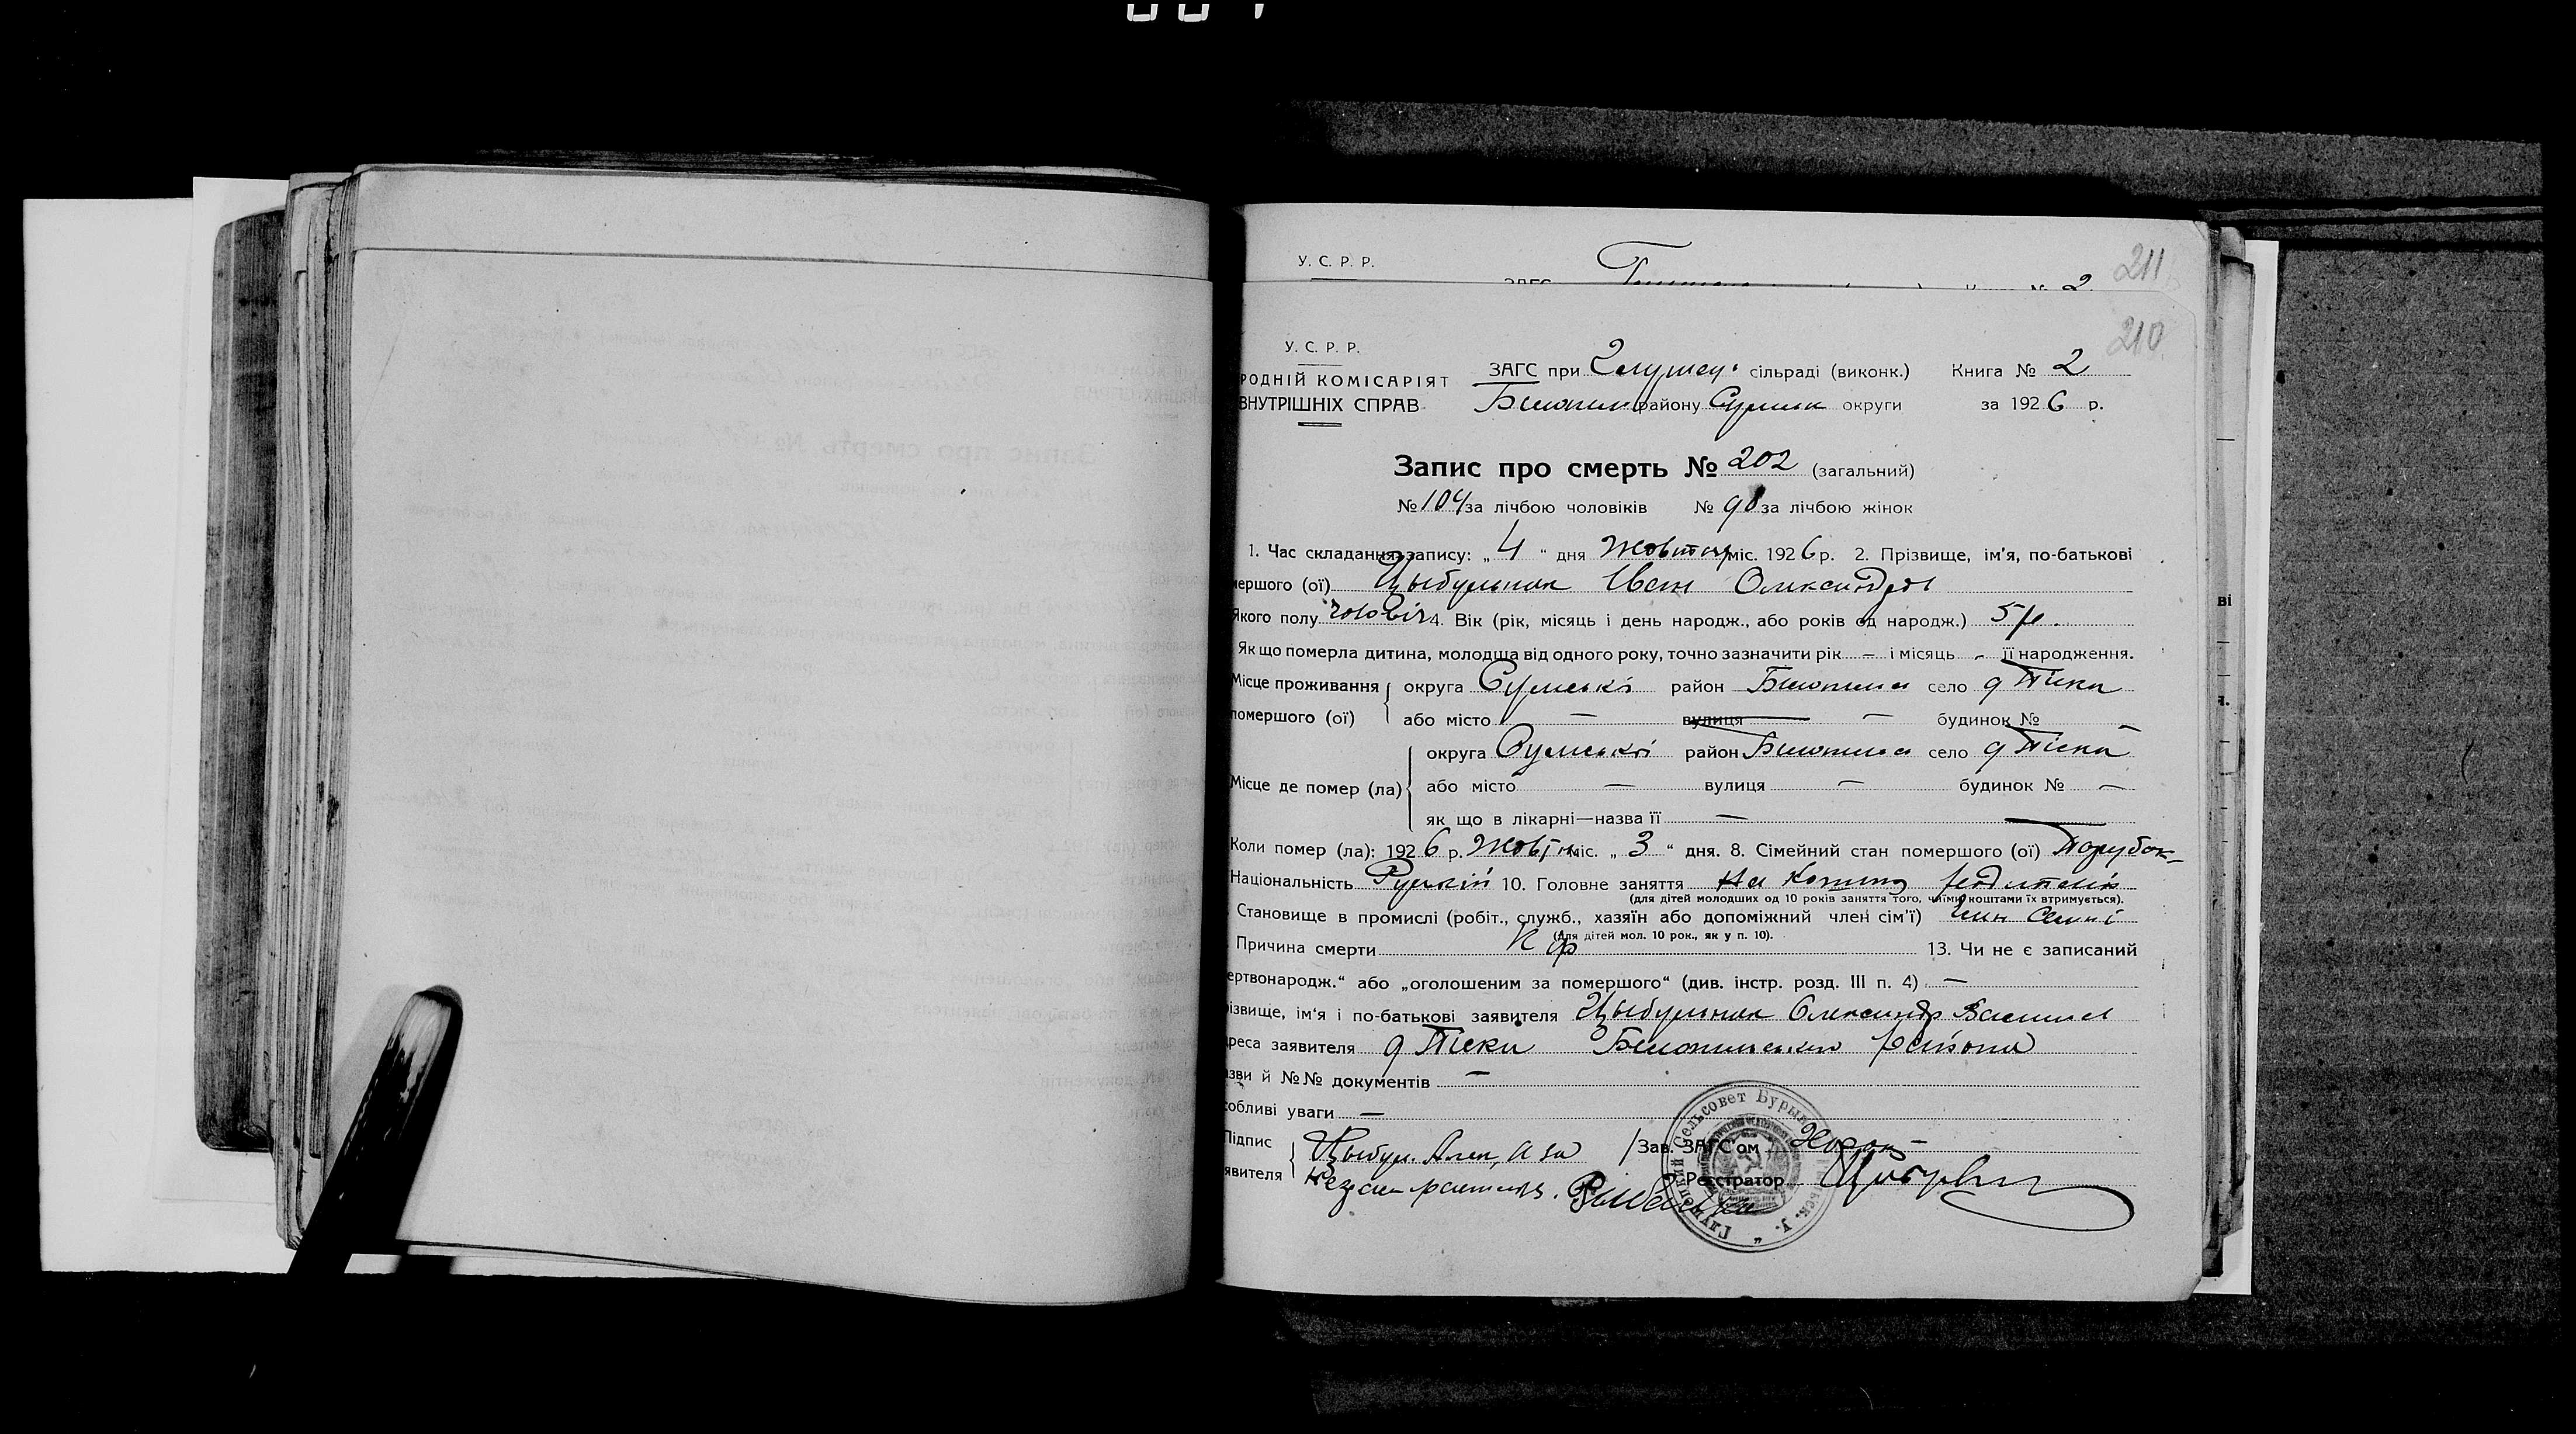 У. С. Р. Р.
211
ЗАГС
№ 2
210
У. С. Р. Р.
РОДНІЙ КОМІСАРІЯТ
ВНУТРІШНІХ СПРАВ
ЗАГС при сільраді (виконк.) Книга № 2
району Сумськ округи за 1926 р.
Запис про смерть № 202 (загальний)
№ 104 за лічбою чоловіків № 98 за лічбою жінок
1. Час складання запису: „ 4 “ дня Жовтня міс. 1926 р. 2. Прізвище, ім'я, по-батькові
мершого (ої) Цыбульник Іван Олександр
Якого полу чоловіч 4. Вік (рік, місяць і день народж., або років од народж.) 5 р.
Як що померла дитина, молодша від одного року, точно зазначити рік — і місяць - її народження.
Місце проживання помершого (ої) округа Сумська район село д Піски
або місто — вулиця — будинок № —
Місце де помер (ла) округа Сумській район село д Піски
або місто — вулиця — будинок № —
як що в лікарні—назва її —
Коли помер (ла): 1926 р. Жовтн міс. „ 3 “ дня. 8. Сімейний стан помершого (ої) Парубок
Національність Руський 10. Головне заняття На
(для дітей молодших од 10 років заняття того, чиїми коштами їх втримується).
Становище в промислі (робіт., служб., хазяїн або допоміжний член сім'ї) член семні
(для дітей мол. 10 рок., як у п. 10).
Причина смерти 13. Чи не є записаний
ертвонародж.“ або „оголошеним за помершого“ (див. інстр. розд. III п. 4) —
ізвище, ім'я і по-батькові заявителя Цыбульник Олександр Васильев
реса заявителя д Піски района
зви й №№ документів —
собливі уваги —
Підпис
явителя
Цыбул. Алек, а за
Зав. ЗАГС'ом
Реєстратор
Сельсовет